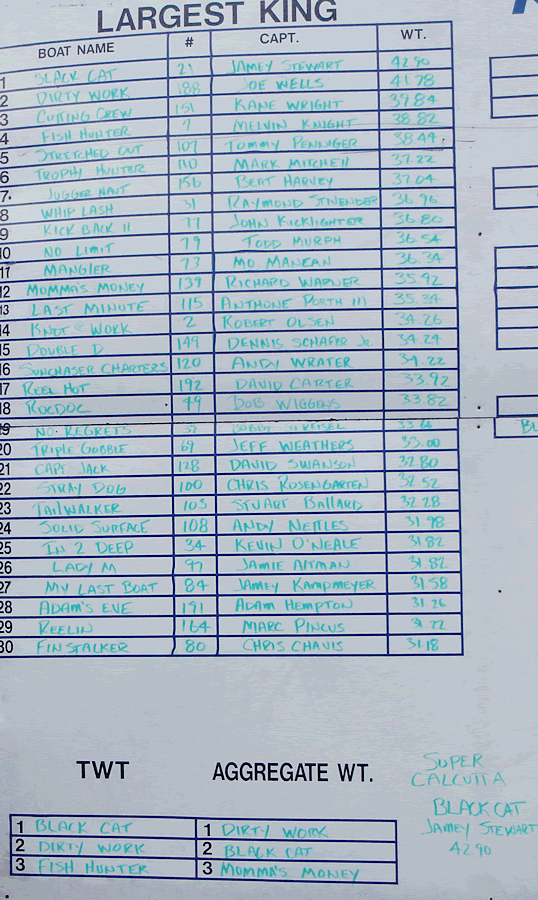 LARGEST KING
BOAT NAME # CAPT. WT.
1 BLACK CAT 21 JAMEY STEWART 42.90
2 DIRTY WORK 188 JOE WELLS 41.78
3 CUTTING CREW 151 KANE WRIGHT 39.84
4 FISH HUNTER 7 MELVIN KNIGHT 38.82
5 STRETCHED OUT 107 TOMMY PENNIGER 38.44
6 TROPHY HUNTER 110 MARK MITCHELL 37.22
7. JUGGER NAUT 156 BERT HARVEY 37.04
8 WHIP LASH 31 RAYMOND 36.96
9 KICK BACK II 77 JOHN KICKLIGHTER 36.80
10 NO LIMIT 79 TODD MURPH 36.54
11 MANGLER 73 MO. MANEAN 36.34
12 MOMMA'S MONEY 139 RICHARD WARNER 35.92
13 LAST MINUTE 115 ANTHONE PORTH III 35.34
14 KNOT @ WORK 2 ROBERT OLSEN 34.26
15 DOUBLE D 149 DENNIS SCHAFER Jr. 34.24
16 SUNCHASER CHARTERS 120 ANDY WRATER 34.22
17 REEL HOT 192 DAVID CARTER 33.92
18 ROCDOC 49 BOB WIGGENS 33.82
19 NO REGRETS
20 TRIPLE GOBBLE 69 JEFF WEATHERS 33.00
21 CAPT. JACK 128 DAVID SWANSON 32.80
22 STRAY DOG 100 CHRIS ROSENGARTEN 32.52
23 TAILWALKER 103 STUART BALLARD 32.28
24 SOLID SURFACE 108 ANDY NETTLES 31.98
25 IN 2 DEEP 34 KEVIN O'NEALE 31.82
26 LADY M 97 JAMIE ALTMAN 31.82
27 MY LAST BOAT 84 JAMEY KAMPMEYER 31.58
28 ADAM'S EVE 191 ADAM HEMPTON 31.26
29 REELIN 164 MARC PINCUS 31.22
30 FINSTALKER 80 CHRIS CHAVIS 31.18
TWT AGGREGATE WT.
1 BLACK CAT 1 DIRTY WORK
2 DIRTY WORK 2 BLACK CAT
3 FISH HUNTER 3 MOMMA'S MONEY
SUPER
CALCUTTA
BLACK CAT
JAMEY STEWART
42.90
BL